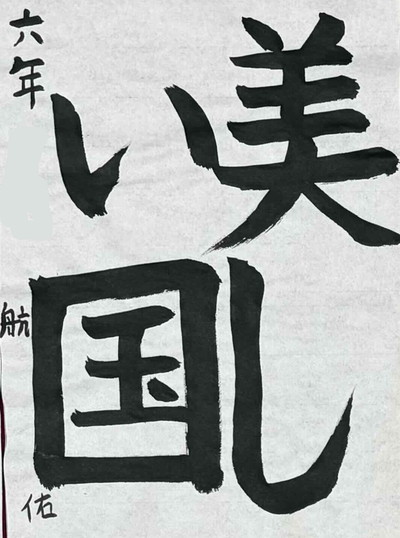 美し
い国
六年
航佑